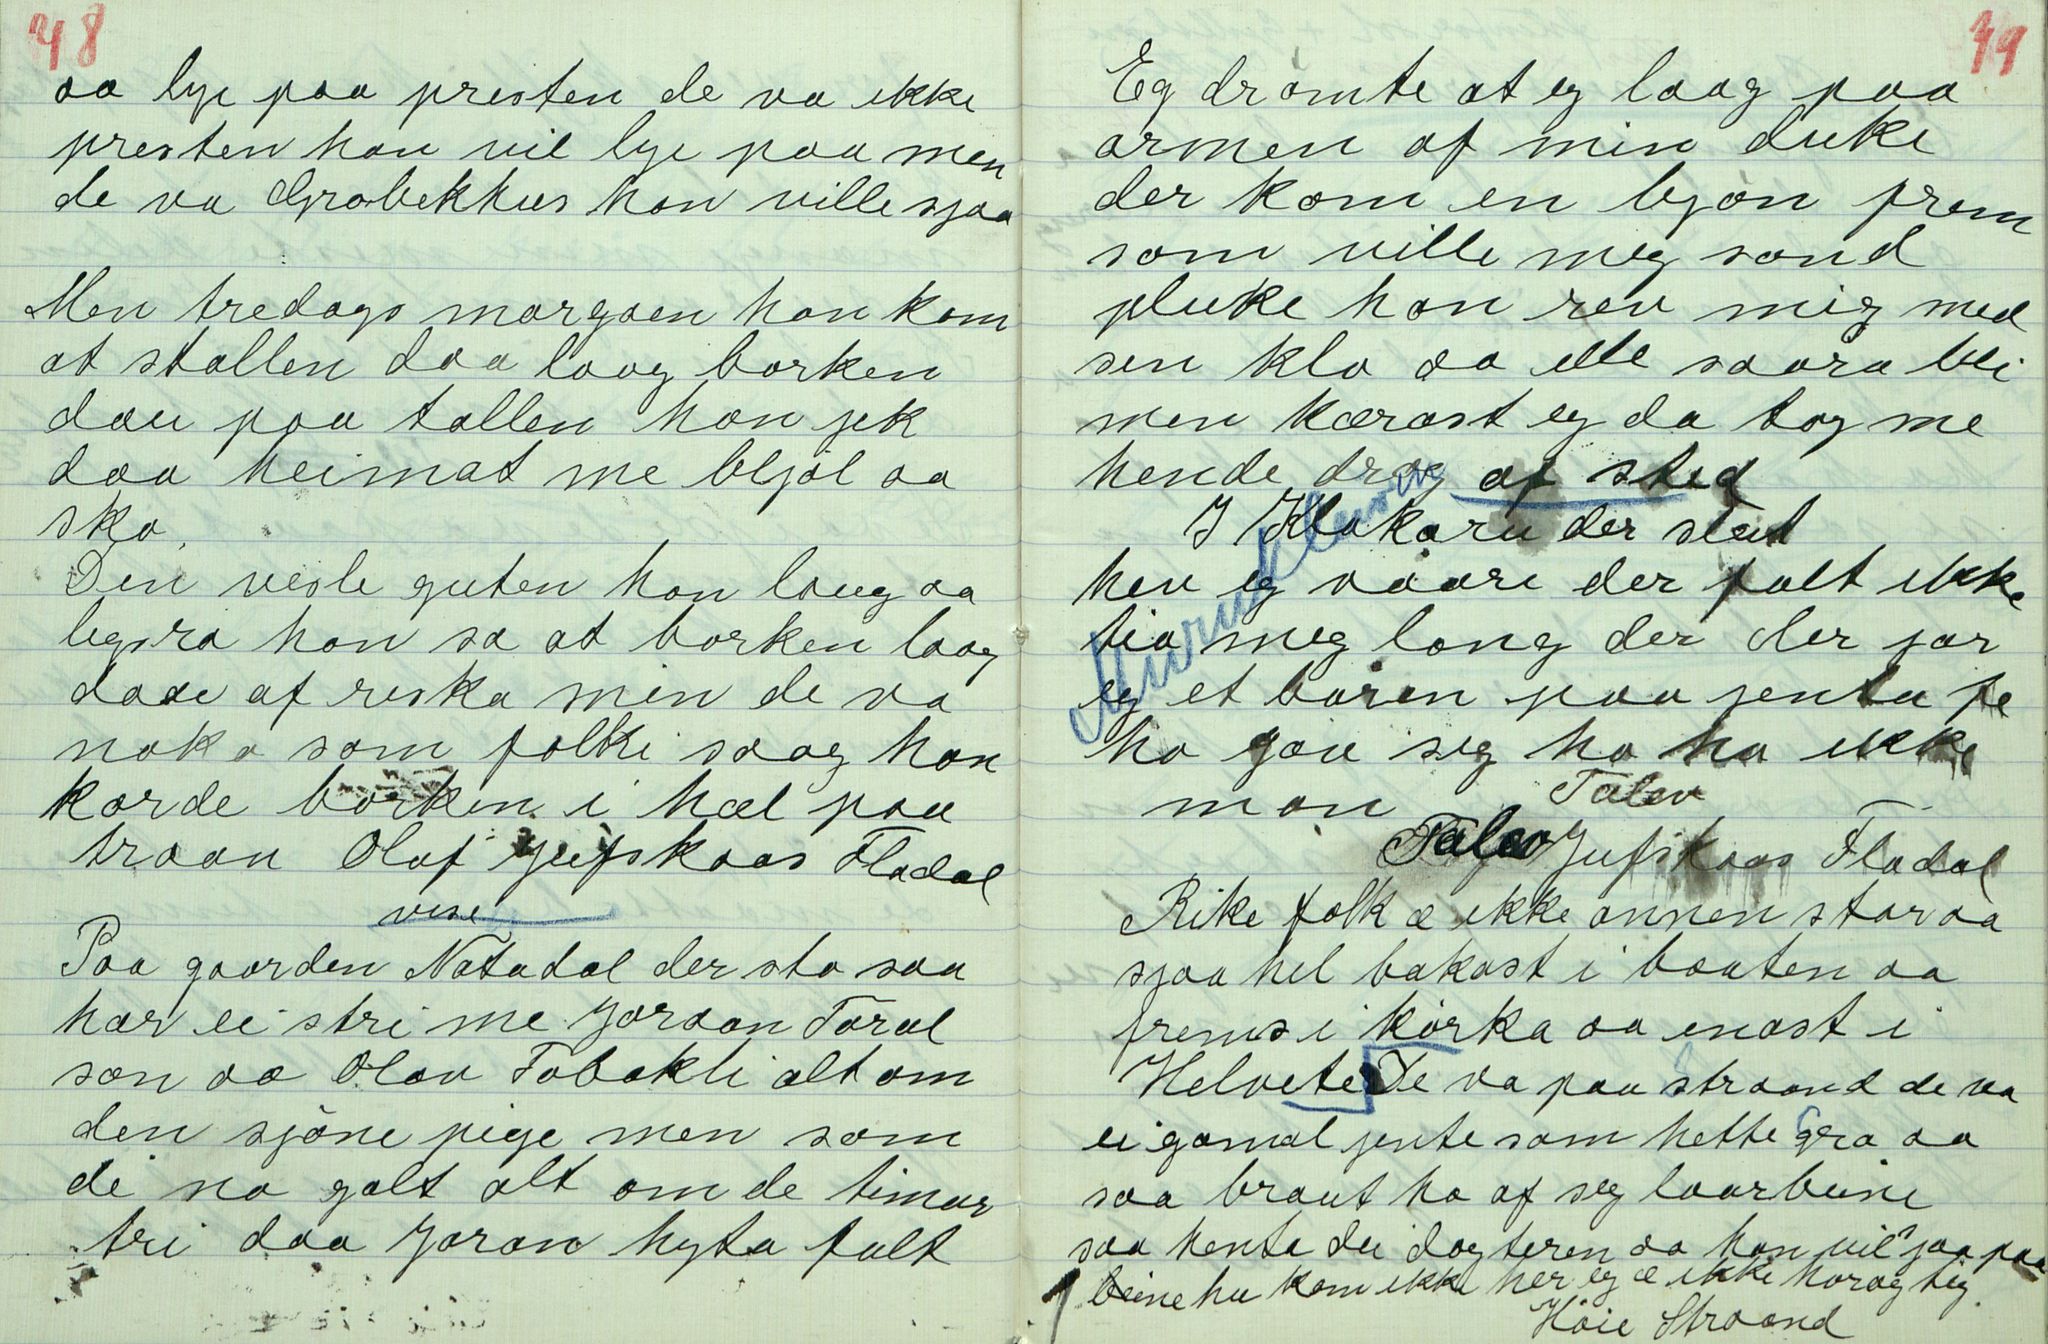 48
aa lye paa presten de va ikke
presten han vil lye paa men
de va Grobekkhus han ville sjaa
Men tredags morgaen han kom
at stallen daa laag borken
dau paa tallen han jek
daa heimat me bljøl aa
sko.
Den vesle guten han laug aa
begra han sa at borken laag
daue af reska men de va
noko som folki saag han
kørde borken i hæl paa
traan Olaf Jufskaas Fladal
vise
Paa gaarden Natadal der sto saa
har ei stri me Jøraan Taral
søn aa Olav Tobakli alt om
den sjöne pige men som
de na galt alt om de timar
tri daa Jøran hyta falt
49
Eg drømte at eg laag paa
armen af min duke
der kom en bjøn frem
som ville meg sønd
pluke han rev mig med
sen klo aa ille saara blei
men kærast eg da tog me
hende drog af sted
I Klokaru der slut
hev eg vaare der falt ikke
tia meg long der der jor
eg et baren paa jenta fe
ho gav seg ho ha ikke
mon
Talev
Talev Jufskaas Fladal
Rike folk æ ikke annen star aa
sjaa hel bakast i baaten aa
frems i kørka aa enast i
Helvete De va paa Straand de va
ei gamal jente som hette Gro aa
saa braut ho af seg laarbeine
saa henta dei dogteren aa han vil jaa paa
beine hu kom ikke her eg æ ikke horag tig.
Høie Straand